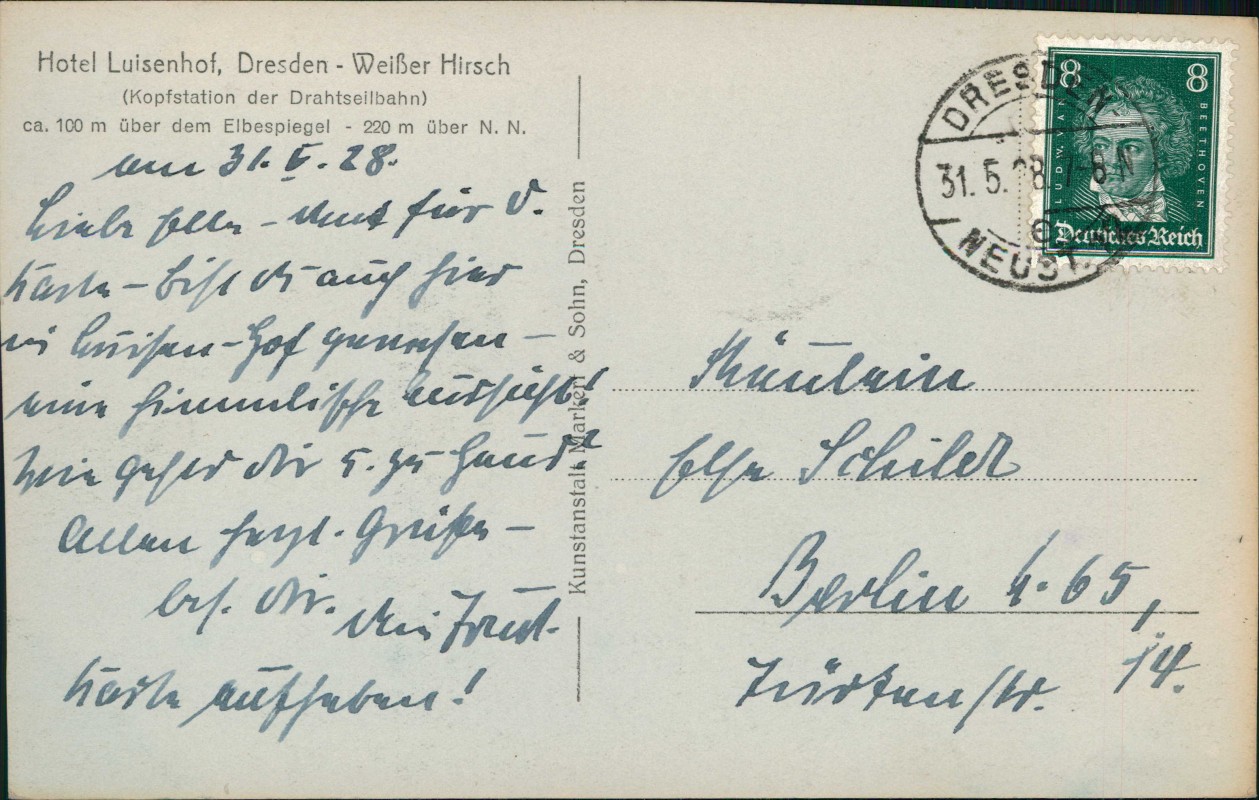 Hotel Luisenhof, Dresden - Weißer Hirsch
(Kopfstation der Drahtseilbahn)
ca. 100 m über dem Elbespiegel - 220 m über N. N.
am 31. V. 28.
Liebe Else - Dank für D.
Karte - Bist du auch hier
im Luisen-Hof gewesen -
eine himmlische Aussicht!
Wie geht es dir u. zu Haus?
Allen herzl. Grüße -
bes. dir. Dein Trud.
Karte aufheben!
Kunstanstalt Markert & Sohn, Dresden
DRESDEN
31. 5. 28. 7-8 N
NEUST.
8 8
LUDW. VAN BEETHOVEN
Deutsches Reich
Fräulein
Else Schildt
Berlin N. 65,
Türkenstr. 14.